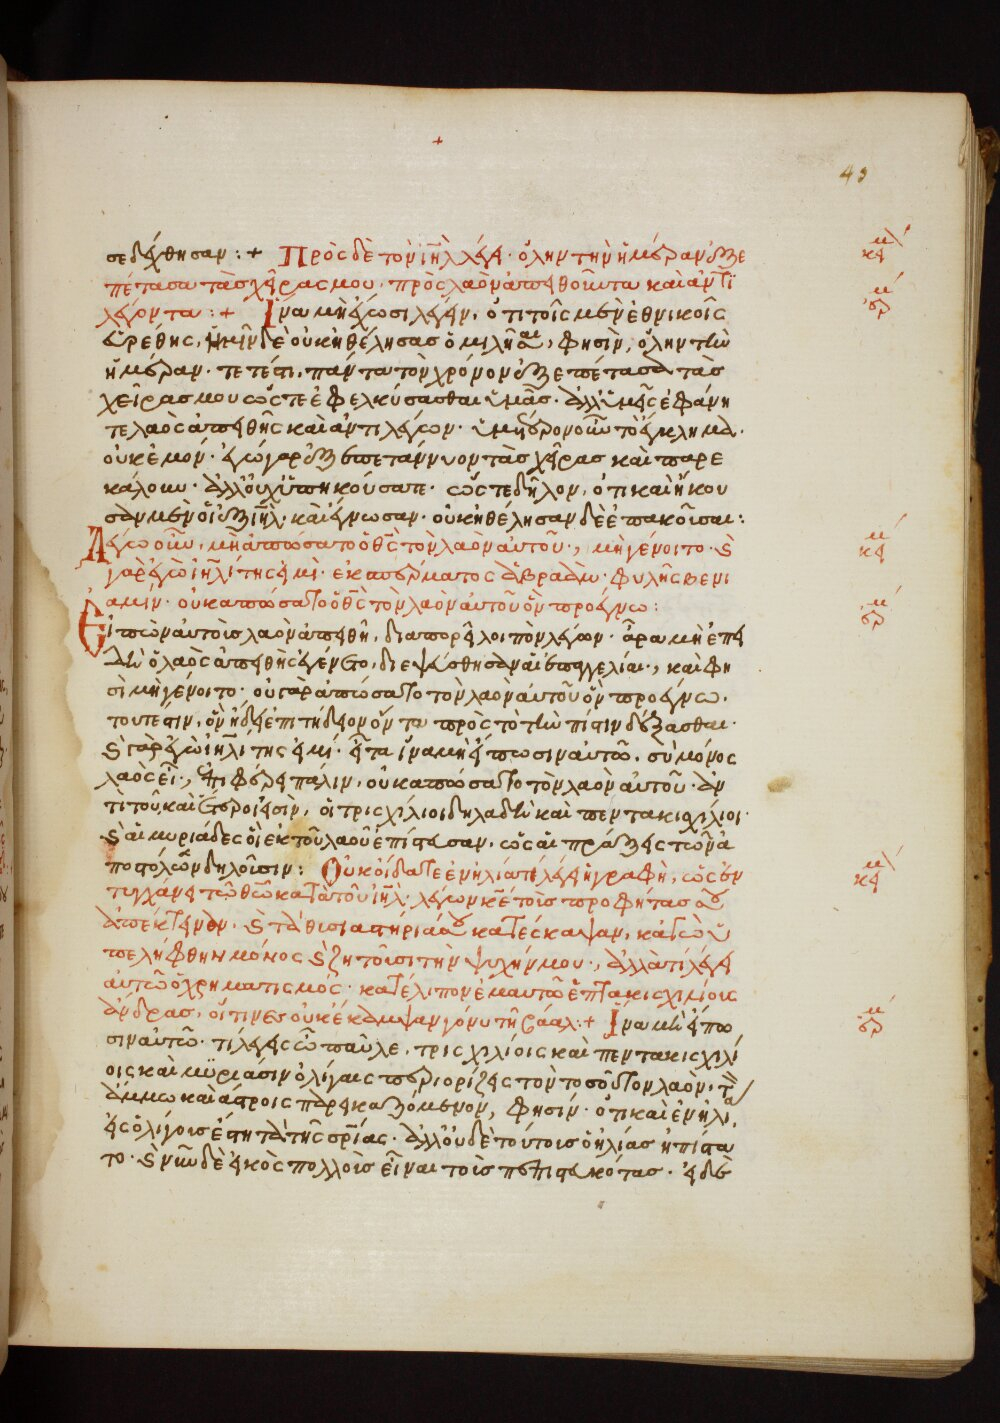 +
49
σεδέχθησαν : + Πρὸς δὲ τὸν ἰῆλ λέγει · ὅλην τὴν ἡμέραν ἐξε
πέτασα τὰς χεῖρας μου · πρὸς λαὸν ἀπειθοῦντα καὶ ἀντι
λέγοντα : + Ἵνα μὴ ἔχωσι λέγειν, ὅτι τοῖς μὲν ἐθνικοῖς
εὑρέθης, ἡμῖν δὲ οὐκ ἠθέλησας ὁμιλῆσαι, φησὶν, ὅλην τὴν
ἡμέραν · τετέστι, πάντα τὸν χρόνον ἐξεπέτασα τὰς
χεῖρας μου ὥστε ἐφελκύσασθαι ὑμᾶς · ἀλλ' ὑμεῖς ἐφάνη
τε λαὸς ἀπειθὴς καὶ ἀντιλέγων · ὑμέτερον οὖν τὸ ἔγκλημα ·
οὐκ ἐμόν · ἐγὼ γὰρ ἐξεπετάννυον τὰς χεῖρας καὶ παρε
κάλουν · ἀλλ' οὐχ ὑπηκούσατε · ὥστε δῆλον, ὅτι καὶ ἤκου
σαν μὲν οἱ ἐξ ἰῆλ · καὶ ἔγνωσαν · οὐκ ἠθέλησαν δὲ ἐπακοῦσαι :
Λέγω οὖν, μὴ ἀπώσατο ὁ θς τὸν λαὸν αὐτοῦ ; μὴ γένοιτο · καὶ
γὰρ ἐγὼ ἰηλίτης εἰμὶ · ἐκ σπέρματος ἀβραὰμ · φυλῆς βενι
αμίν · οὐκ ἀπώσατο ὁ θς τὸν λαὸν αὐτοῦ ὃν προέγνω :
Εἰπὼν αὐτοὺς λαὸν ἀπειθῆ, διαπορεῖ λοιπὸν λέγων · ἆρα μὴ ἐπει
δὴ ὁ λαὸς ἀπειθὴς ἐγένετο, διεψεύσθησαν αἱ ἐπαγγελίαι ; καὶ φη
σὶ μὴ γένοιτο · οὐ γὰρ ἀπώσατο τὸν λαὸν αὐτοῦ ὃν προέγνω ·
τουτέστιν, ὃν ᾔδει ἐπιτήδειον ὄντα πρὸς τὸ τὴν πίστιν δέξασθαι ·
καὶ γὰρ ἐγὼ ἰηλίτης εἰμὶ · εἶτα ἵνα μὴ εἴπωσιν αὐτῷ · σὺ μόνος
λαὸς εἶ ; ἐπιφέρει πάλιν, οὐκ ἀπώσατο τὸν λαὸν αὐτοῦ · ἀν
τὶ τοῦ, καὶ ἕτεροι εἰσὶν, οἱ τρισχίλιοι δηλαδὴ καὶ πεντακισχίλιοι ·
καὶ αἱ μυριάδες οἳ ἐκ τοῦ λαοῦ ἐπίστευσαν, ὡς αἱ πράξεις τῶν ἀ
ποστόλων δηλοῦσιν : Οὐκ οἴδατε ἐν ἠλίᾳ τί λέγει ἡ γραφὴ, ὡς ἐν
τυγχάνει τῷ θῷ κατὰ τοῦ ἰῆλ · λέγων κε τοὺς προφήτας σου
ἀπέκτειναν · καὶ τὰ θυσιαστήριά σου κατέσκαψαν, κἀγὼ ὑ
πελήφθην μόνος καὶ ζητοῦσι τὴν ψυχήν μου ; ἀλλὰ τί λέγει
αὐτῷ ὁ χρηματισμός · κατέλιπον ἐμαυτῷ ἑπτακισχιλίους
ἄνδρας, οἵτινες οὐκ ἔκαμψαν γόνυ τῇ βάαλ : + Ἵνα μὴ εἴπω
σιν αὐτῷ · τί λέγεις ὦ παῦλε, τρισχιλίοις καὶ πεντακισχιλί
οις καὶ μυριάσιν ὀλίγαις περιορίζεις τὸν τοσοῦτον λαὸν, τῇ
ἄμμῳ καὶ ἄστροις παρεικαζόμενον, φησίν · ὅτι καὶ ἐν ἠλίᾳ
εἰς ὀλίγους ἔστη τὰ τῆς σρίας · ἀλλ' οὐδὲ τούτους ὁ ἠλίας ἠπίστα
το · καὶ νῦν δὲ εἰκὸς πολλοὺς εἶναι τοὺς πεπιστευκότας · εἰ δὲ
κεί
ερ
κεί
ερ
κεί
ερ